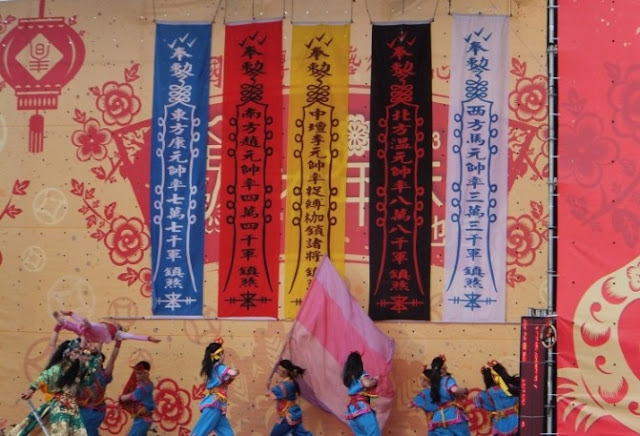 奉勅東方康元帥率七萬七千軍鎮煞
奉勅南方趙元帥率四萬四千軍鎮煞
奉勅中壇李元帥率捉縛枷鎖諸將
奉勅北方溫元帥率八萬八千軍鎮煞
奉勅西方馬元帥率三萬三千軍鎮煞